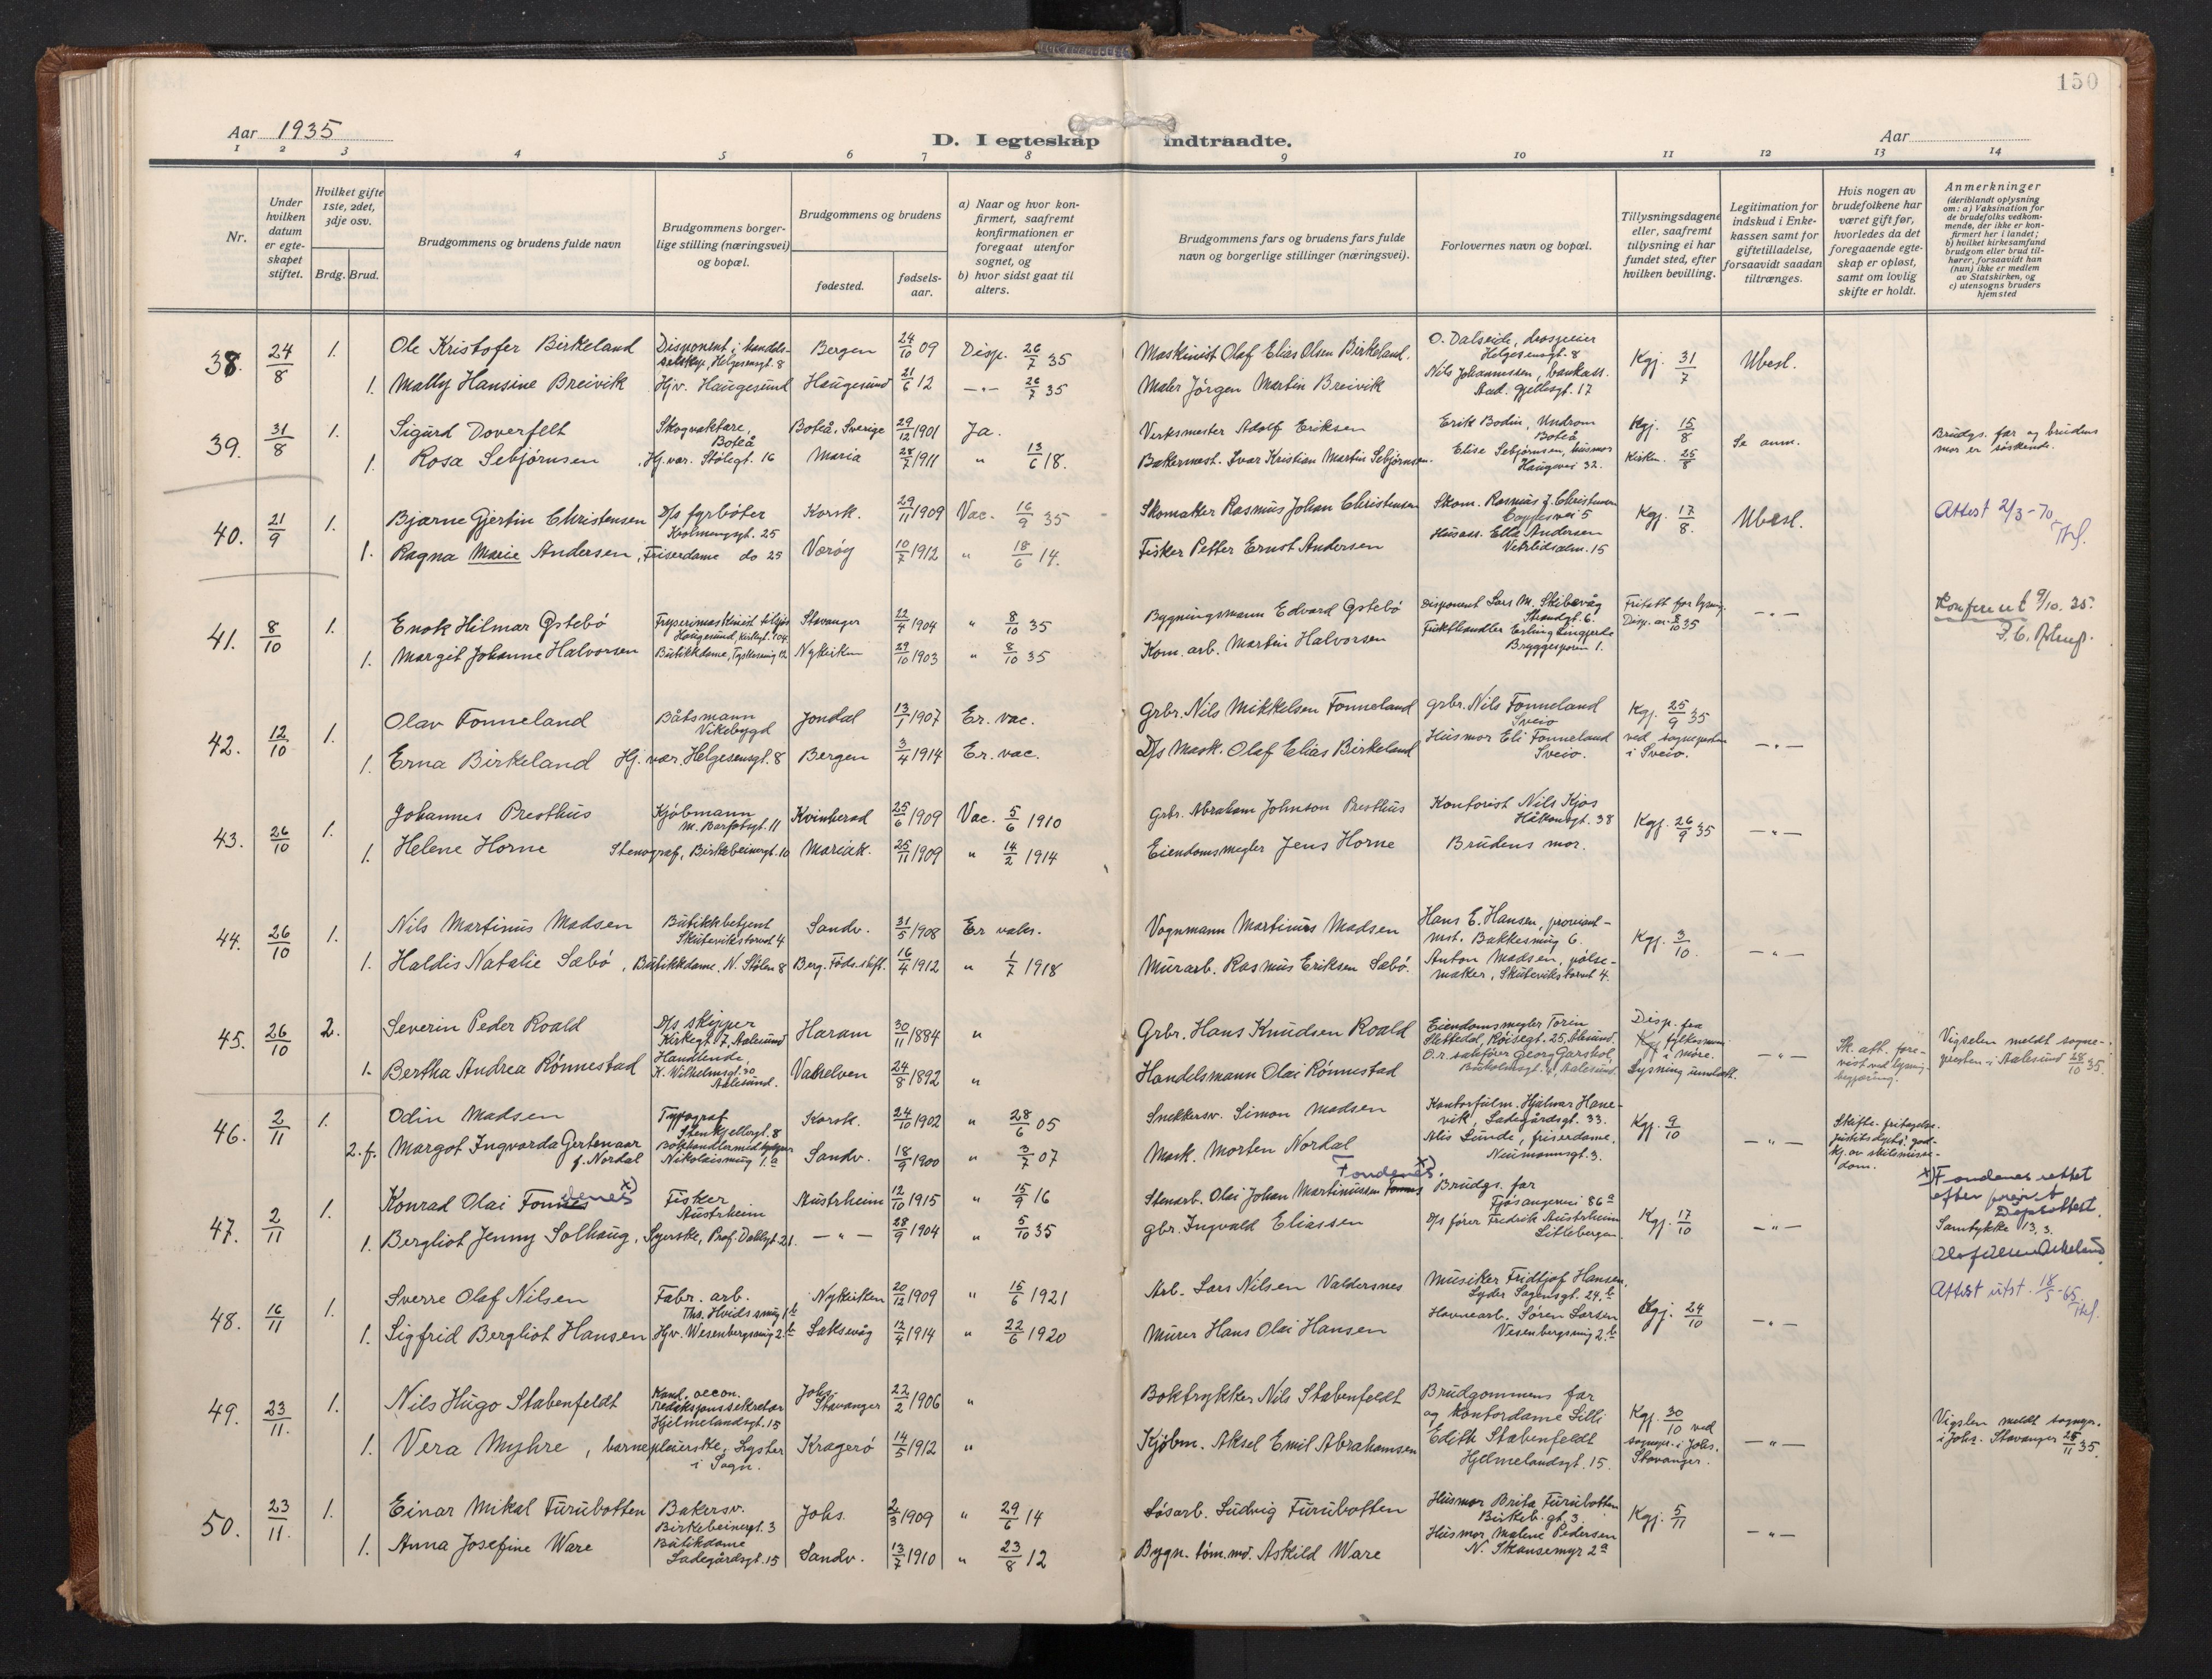 150
Aar 1935
D. Iegteskap indtraadte.
Aar
1 2 3 4 5 6 7 8 9 10 11 12 13 14
Nr.
Under hvilken datum er egteskapet stiftet.
Hvilket gifte 1ste, 2det, 3dje osv.
Brdg. Brud.
Brudgommens og brudens fulde navn
Brudgommens borgerlige stilling (næringsvei) og bopæl.
Brudgommens og brudens
fødested.
fødselsaar.
a) Naar og hvor konfirmert, saafremt konfirmationen er foregaat utenfor sognet, og
b) hvor sidst gaat til alters.
Brudgommens fars og brudens fars fulde navn og borgerlige stillinger (næringsvei).
Forlovernes navn og bopæl.
Tillysningsdagene eller, saafremt tillysning ei har fundet sted, efter hvilken bevilling.
Legitimation for indskud i Enkekassen samt for giftetilladelse, forsaavidt saadan tiltrænges.
Hvis nogen av brudefolkene har været gift før, hvorledes da det foregaaende egteskap er opløst, samt om lovlig skifte er holdt.
Anmerkninger (deriblandt oplysning om: a) Vaksination for de brudefolks vedkommende, der ikke er konfirmert her i landet; b) hvilket kirkesamfund brudgom eller brud tilhører, forsaavidt han (hun) ikke er medlem av Statskirken, og c) utensogns bruders hjemsted
38. 24/8 1. Ole Kristofer Birkeland Disponent i handelsselskap, Helgesensgt. 8 Bergen 24/10 09 Disp. 26/7 35 Maskinist Olaf Elias Olsen Birkeland. O. Dalseide, drosjeeier Helgesensgt. 8 Kgj. 31/7 Ubesl.
1. Mally Hansine Breivik Hjv. Haugesund Haugesund 21/6 12 —"— 26/7 35 Maler Jørgen Martin Breivik Nils Johannessen, bankass. Aad. Gjellesgt. 17
39. 31/8 1. Sigurd Doverfelt Skogvaktare, Boteå Boteå, Sverige 29/12 1901 Ja. Verksmester Adolf Eriksen Erik Bodin, Undrom Boteå Kgj. 15/8 Se anm. Brudgs. far og brudens mor er søskende.
1. Rosa Sebjørnsen, Hj.vær. Stølegt. 16 Maria 24/7 1911 " 13/6 18. Bakermest. Ivar Kristian Martin Sebjørnsen. Elise Sebjørnsen, husmor Haugevei 32. Kirken. 25/8
40. 21/9 1. Bjarne Gjertin Christensen D/s fyrbøter Kalmengsgt. 25 Korsk. 29/11 1909 Vac. 16/9 35 Skomaker Rasmus Johan Christensen Skom. Rasmus J. Christensen 5 Kgj. 17/8. Ubesl. Attest 2/3-70
1. Ragna Marie Andersen, Friserdame do 25 Værøy 10/7 1912 " 18/6 14. Fisker Petter Ernst Andersen Husass. Ella Andersen Vetrlidsalm. 15
41. 8/10 1. Enok Hilmar Østebø Fryserimaskinist tilsjøs Haugesund, Kirkegt. 104 Stavanger 22/4 1904 " 8/10 35 Bygningsmann Edvard Østebø Disponent Lars M. Skibevåg Strandgt. 6. Fritatt for lysning Disp. av 8/10 35 —"— Konferert 9/10. 35.
1. Margit Johanne Halvorsen Butikkdame, Tyskesmig 12 Nykirken 29/10 1903 " 8/10 35 Kom. arb. Martin Halvorsen Fiskehandler Erling Lingjerde Bryggesporen 1.
42. 12/10 1. Olav Tonneland Båtsmann Vikebygd Jondal 13/1 1907 Er. vac. Grbr. Nils Mikkelsen Tonneland grbr. Nils Tonneland Sveio Kgj. 25/9 35 ved sognepresten i Sveio. —"—
1. Erna Birkeland Hj. vær. Helgesensgt. 8 Bergen 3/4 1914 Er. vac. D/s Mask. Olaf Elias Birkeland Husmor Eli Tonneland Sveio.
43. 26/10 1. Johannes Presthus Kjøbmann M. Barfotsgt. 11 Kvinherad 25/6 1909 Vac. 5/6 1910 Grbr. Abraham Johnson Presthus Kontorist Nils Kjos Håkonsgt. 38 Kgj. 26/9 35 —"—
1. Helene Horne Stenograf, Birkebeinergt. 10 Mariak. 25/11 1909 " 14/2 1914 Eiendomsmegler Jens Horne Brudens mor.
44. 26/10 1. Nils Martinus Madsen Butikkbetjent Skuteviksborvet 4 Sandv. 31/5 1908 Er vaks. Vognmann Martinus Madsen Hans E. Hansen, proviantmst. Bakkesmug 6. Kgj. 3/10. —"—
1. Haldis Natalie Sæbø, Butikkdame, N. Stølen 8 Berg. Føds.stift. 16/4 1912 " 1/7 1918 Murarb. Rasmus Eriksen Sæbø. Anton Madsen, pølsemaker, Skuteviks torvet 4.
45. 26/10 2. Severin Peder Roald D/s skipper Kirkegt. 7, Aalesund Haram 30/11 1884 " Grbr. Hans Knudsen Roald Eiendomsmegler Torin Slettedal, Røisegt. 25, Ålesund. Disp. fra fylkesmann i Møre. —"— Sk. att. forevist ved lysningsbegjæring. Vigselen meldt sognepresten i Aalesund 28/10 35.
1. Bertha Andrea Rønnestad Handlende, K. Wilhelmsgt. 30 Aalesund. Vatnelven 24/8 1892 " Handelsmann Olai Rønnestad O.r. sakfører Georg Garshol, Aalesund. Lysning unnlatt.
46. 2/11 1. Odin Madsen Typograf Stenkjellergt. 8 Korsk. 24/10 1902 " 28/6 05 Snekkersv. Simon Madsen Kontorfulm. Hjalmar Hanevik, Ladegårdsgt. 33. Kgj. 9/10 —"— Skifte. fritagelse. justitsdepts. godkj. av skilsmissedom.
2. f. Margot Ingvarda Gertenaar f. Nordal Bokhandlermedhjelper Nikolaismug 1.a Sandv. 18/9 1900 " 3/7 07 Mask. Morten Nordal Alis Lunde, friserdame, Neumannsgt. 3.
47. 2/11 1. Konrad Olai Fondenes x) Fisker Austrheim Austrheim 12/10 1915 " 15/9 16 Stenarb. Olai Johan Martinussen Fondenes x). Brudgs. far Fjøsangervei 86a Kgj. 17/10 —"— x) Fondenes rettet efter Dåpsattest. Samtykke 13.3.
1. Bergliot Jenny Solhaug, Syerske, Prof. Dahlsgt. 21. —"— 28/9 1904 " 5/10 35 gbr. Ingvald Eliassen D/s fører Fredrik Austrheim Litlebergen.
48. 16/11 1. Sverre Olaf Nilsen Fabr. arb. Ths. Hvids smug 1b Nykirken 20/12 1909 " 15/6 1921 Arb. Lars Nilsen Valdersnes Musiker Fridtjof Hansen, Lyder Sagensgt. 24.b Kgj. 24/10 —"— Attest utst. 18/5-65
1. Sigfrid Bergliot Hansen Hjv. Wesenbergsmug 2b Laksevåg 12/4 1914 " 22/6 1920 Murer Hans Olai Hansen Havnearb. Søren Larsen Vesenbergsmug 2.b
49. 23/11. 1. Nils Hugo Stabenfeldt Kand. oecon. redaksjonssekretær Hjelmelandsgt. 15 Johs. Stavanger 22/2 1906 " Boktrykker Nils Stabenfeldt Brudgommens far og kontordame Lilli Kgj. 30/10 ved sognepr. i Johs. Stavanger. —"— Vigslen meldt sognepr. i Johs. Stavanger 25/11 35.
1. Vera Myhre, barnepleierske, Lyster i Sogn. Kragerø 14/5 1912 " Kjøbm. Aksel Emil Abrahamsen Edith Stabenfeldt Hjelmelandsgt. 15.
50. 23/11. 1. Einar Mikal Furubotten Bakersv. Birkebeinergt. 3 Johs. 2/3 1909 " 29/6 14 Løsarb. Ludvig Furubotten Husmor Brita Furubotten Birkeb.gt. 3. Kgj. 5/11 —"—
1. Anna Josefine Ware Butikdame Ladegårdsgt. 15 Sandv. 13/7 1910 " 23/8 12 Bygn. tøm.md. Askild Ware Husmor Malene Pedersen N. Skansemyr 2a